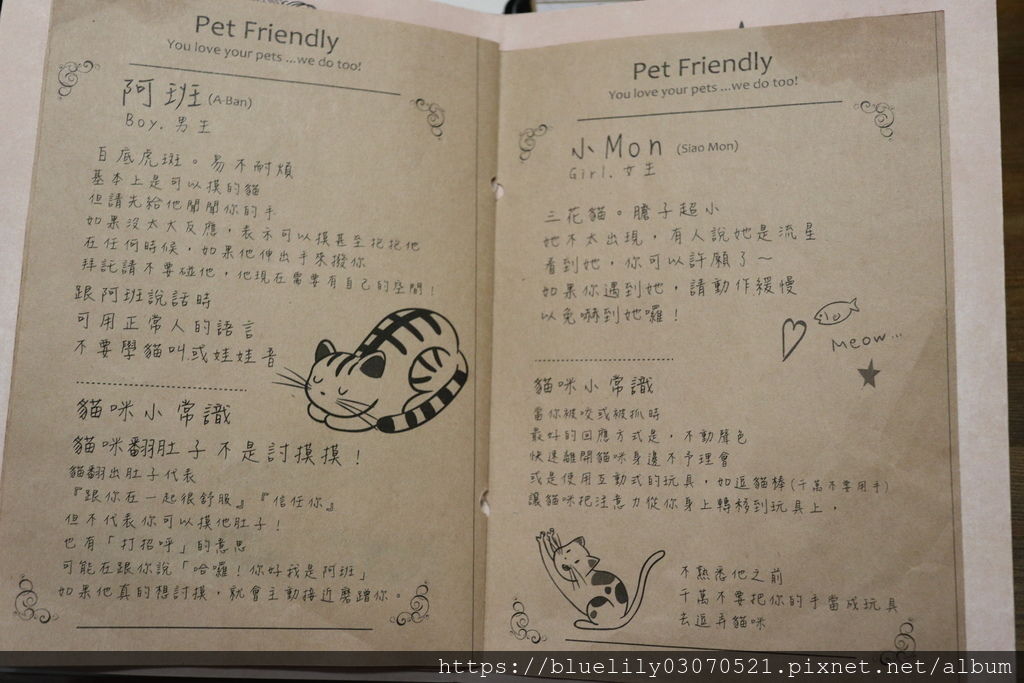 Pet Friendly
You love your pets ...we do too!
阿班 (A-Ban)
Boy. 男生
白底虎斑。易不耐煩
基本上是可以摸的貓
但請先給他聞聞你的手
如果沒太大反應，表示可以摸甚至抱抱他
在任何時候，如果他伸出手來撥你
拜託請不要碰他，他現在需要有自己的空間！
跟阿班說話時
可用正常人的語言
不要學貓叫.或娃娃音
貓咪小常識
貓咪翻肚子不是討摸摸！
貓翻出肚子代表
『跟你在一起很舒服』『信任你』
但不代表你可以摸他肚子！
也有「打招呼」的意思
可能在跟你說「哈囉！你好我是阿班」
如果他真的想討摸，就會主動接近磨蹭你。
Pet Friendly
You love your pets ...we do too!
小Mon (Siao Mon)
Girl. 女生
三花貓。膽子超小
她不太出現，有人說她是流星
看到她，你可以許願了～
如果你遇到她，請動作緩慢
以免嚇到她囉！
Meow...
貓咪小常識
當你被咬或被抓時
最好的回應方式是，不動聲色
快速離開貓咪身邊不予理會
或是使用互動式的玩具，如逗貓棒(千萬不要用手)
讓貓咪把注意力從你身上轉移到玩具上，
不熟悉他之前
千萬不要把你的手當成玩具
去逗弄貓咪
https://bluelily03070521.pixnet.net/album